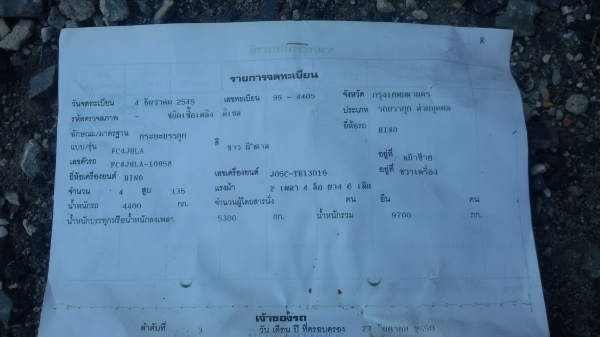 8
รายการจดทะเบียน
วันจดทะเบียน 4 ธันวาคม 2545 เลขทะเบียน 95 - 4405 จังหวัด กรุงเทพมหานคร
รหัสตรวจสภาพ - ชนิดเชื้อเพลิง ดีเซล ประเภท รถบรรทุก ส่วนบุคคล
ลักษณะ/มาตรฐาน กระบะบรรทุก ยี่ห้อรถ HINO
แบบ/รุ่น FC4JHLA สี ขาว
เลขตัวรถ FC4JHLA-10858 อยู่ที่ หน้าซ้าย
ยี่ห้อเครื่องยนต์ HINO เลขเครื่องยนต์ J05C-TE13016 อยู่ที่ ขวาเครื่อง
จำนวน 4 สูบ 135 แรงม้า 2 เพลา 4 ล้อ ยาง 6 เส้น
น้ำหนักรถ 4400 กก. จำนวนผู้โดยสารนั่ง คน ยืน คน
น้ำหนักบรรทุกหรือน้ำหนักลงเพลา 5300 กก. น้ำหนักรวม 9700 กก.
เจ้าของรถ
ลำดับที่ 3 วัน เดือน ปี ที่ครอบครอง 27 2550